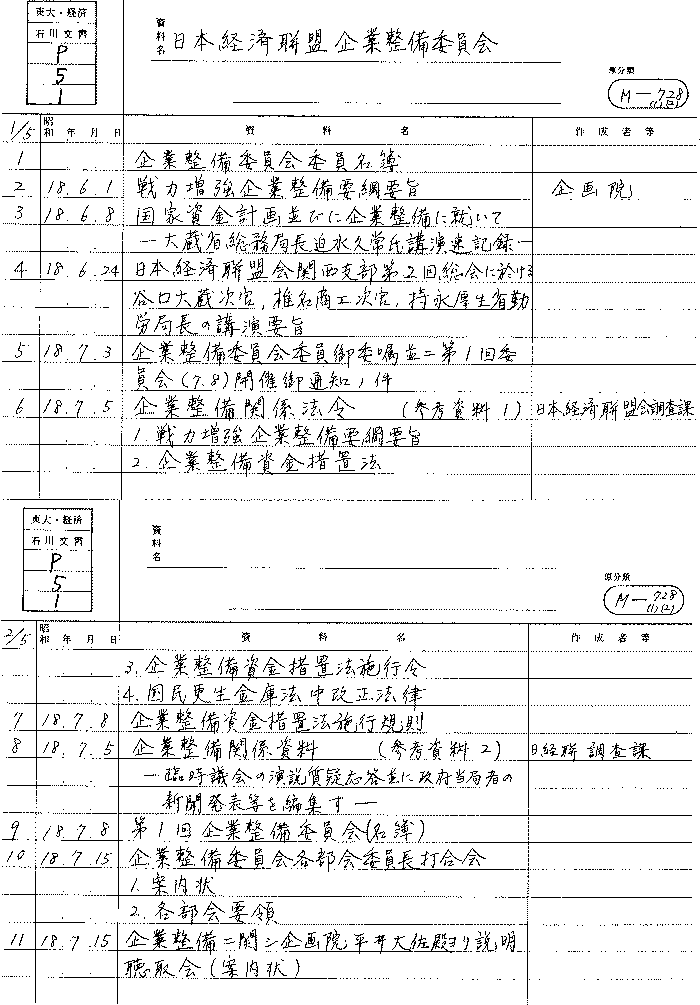 東大・経済
石川文書
P
5
1
資料名 日本経済聯盟企業整備委員会
原分類
M-728
(1)(2)
1/5 昭和 年 月 日 資 料 名 作成者等
1 企業整備委員会委員名簿
2 18.6.1 戦力増強企業整備要綱要旨 企画院
3 18.6.8 国家資金計画並びに企業整備に就いて
―大蔵省総務局長迫水久常氏講演速記録―
4 18.6.24 日本経済聯盟会関西支部第2回総会に於ける
谷口大蔵次官,椎名商工次官,持永厚生省勤
労局長の講演要旨
5 18.7.3 企業整備委員会委員御委嘱並ニ第1回委
員会(7.8)開催御通知ノ件
6 18.7.5 企業整備関係法令 (参考資料1) 日本経済聯盟会調査課
1.戦力増強企業整備要綱要旨
2.企業整備資金措置法
東大・経済
石川文書
P
5
1
資料名
原分類
M-728
(1)(2)
2/5 昭和 年 月 日 資 料 名 作成者等
3.企業整備資金措置法施行令
4.国民更生金庫法中改正法律
7 18.7.8 企業整備資金措置法施行規則
8 18.7.5 企業整備関係資料 (参考資料2) 日経聯調査課
―臨時議会の演説質疑応答並に政府当局者の
新聞発表等を編集す―
9 18.7.8 第1回企業整備委員会(名簿)
10 18.7.15 企業整備委員会各部会委員長打合会
1.案内状
2.各部会要領
11 18.7.15 企業整備ニ関シ企画院平井大佐殿ヨリ説明
聴取会(案内状)